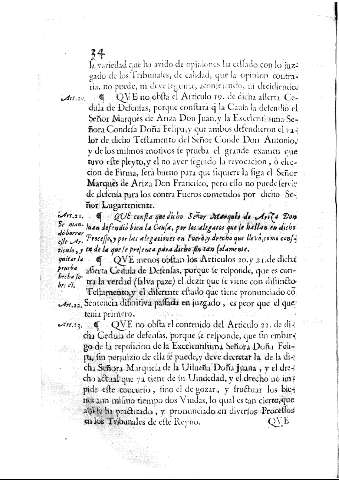 34
la variedad que ha avido de opiniones ha cessado con lo juz-
gado de los Tribunales, de calidad, que la opinion contra-
ria, no puede, ni deve seguirse,
Art. 20. ¶ QVE no obsta el Articulo 19. de dicha asserta Ce-
dula de Defensas, porque constarà que la Causa la defendiò el
Señor Marquès de Ariza Don Juan, y la Excelentissima Se-
ñora Condesa Doña Felipa, y que ambos defendieron el va-
lor de dicho Testamento del Señor Conde Don Antonio,
y de los mismos motivos se prueba el grande examen que
tuvo este pleyto, y el no aver seguido la revocacion, ò elec-
cion de Firma, serà bueno para que tuquiere la siga el Señor
Marquès de Ariza Don Francisco, pero esso no puede servir
de defensa para los contra Fueros cometidos por dicho Se-
ñor Lugarteniente.
Art. 21. ¶ QUE consta que dicho Señor Marquès de Ariza Don
Se man-
da borrar
este Ar-
ticulo, y
quitar la
prueba
hecha so-
bre el.
Juan defendiò bien la Causa, por los alegatos que se hallan en dicho
Processo, y por las alegaciones en Fuero, y drecho que llevò, como cons-
ta de la que se presenta para dicho fin tan solamente.
¶ QUE menos obstan los Articulos 20. y 21. de dicha
asserta Cedula de Defensas, porque se responde, que es con-
tra la verdad (salva pace) el dezir que se vinò con distinto
Testamento, y el diferente estado que tiene pronunciado cõ
Art. 22. Sentencia difinitiva passada en juzgado, es peor que el que
tenia primero.
Art. 23. ¶ QVE no obsta el contenido del Articulo 22. de di-
cha Cedula de defensas, porque se responde, que sin embar-
go de la reposicion de la Excelentissima Señora Doña Feli-
pa, sin perjuizio de ella se puede, y deve decretar la de la di-
cha Señora Marquesa de la Vilueña Doña Juana, y el dre-
cho actual que ya tiene de su Viudedad, y el drecho no im-
pide este concurso, sino el de gozar, y fructuar los bie-
nes aun mismo tiempo dos Viudas, lo qual es tan cierto, que
assi se ha practicado, y pronunciado en diversos Processos
en los Tribunales de este Reyno. QVE